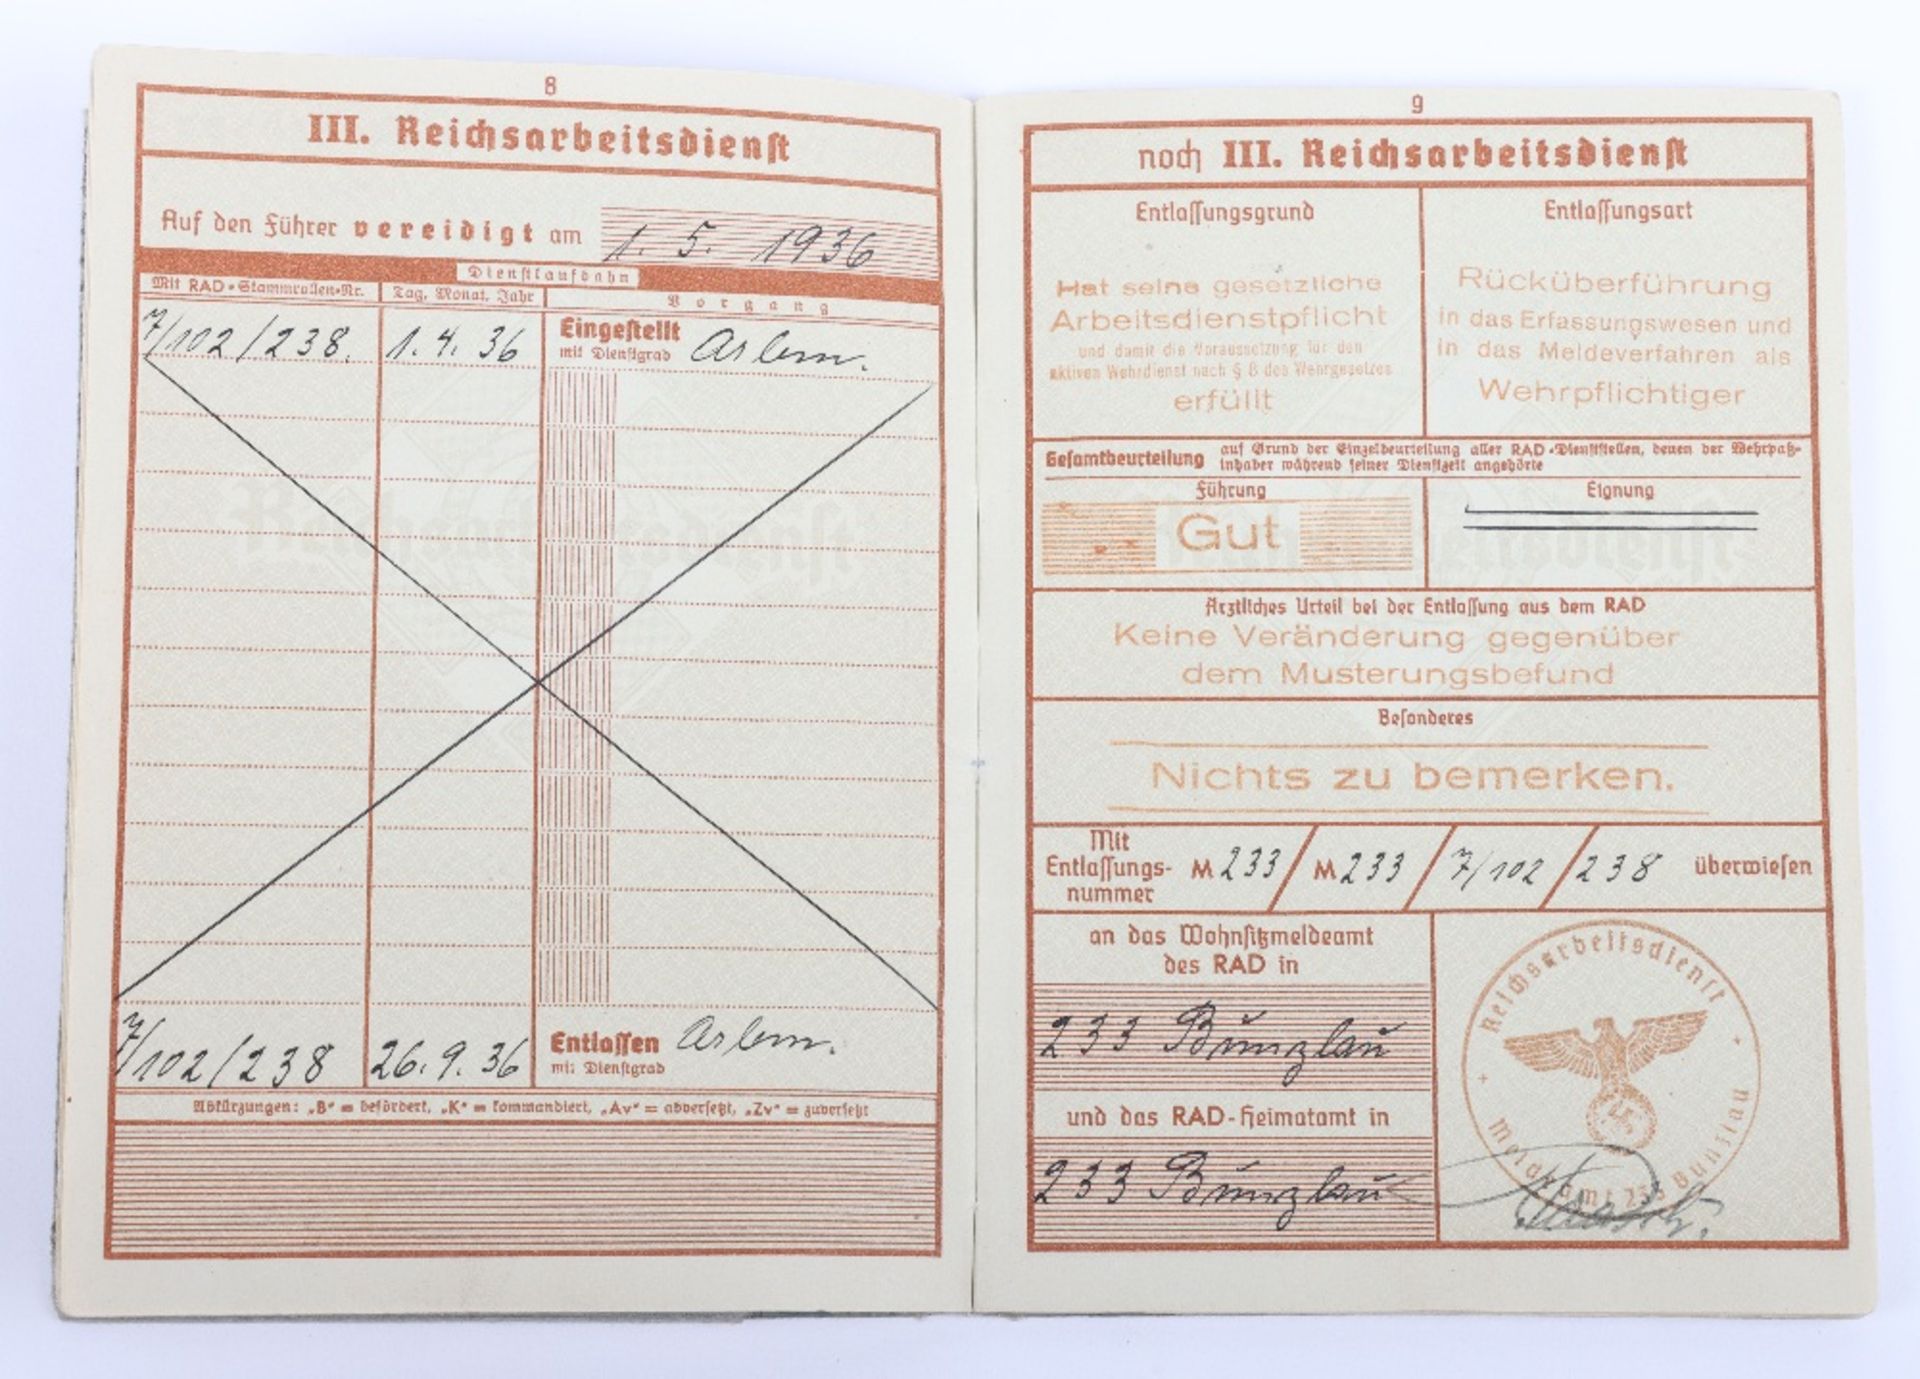 8
III. Reichsarbeitsdienst
Auf den Führer vereidigt am 1. 5. 1936
Dienstlaufbahn
Mit RAD-Stammrollen-Nr. Tag, Monat, Jahr Vorgang
7/102/238. 1. 4. 36 Eingestellt Arbm.
mit Dienstgrad
Reichsarbeitsdienst
7/102/238 26. 9. 36 Entlassen Arbm.
mit Dienstgrad
Abkürzungen: „B“ = befördert, „K“ = kommandiert, „Av“ = abversetzt, „Zv“ = zuversetzt
9
noch III. Reichsarbeitsdienst
Entlassungsgrund
Hat seine gesetzliche
Arbeitsdienstpflicht
und damit die Voraussetzung für den
aktiven Wehrdienst nach § 8 des Wehrgesetzes
erfüllt
Entlassungsart
Rücküberführung
in das Erfassungswesen und
in das Meldeverfahren als
Wehrpflichtiger
Gesamtbeurteilung auf Grund der Einzelbeurteilung aller RAD-Dienststellen, denen der Wehrpaß-
inhaber während seiner Dienstzeit angehörte
Führung
Gut
Eignung
Ärztliches Urteil bei der Entlassung aus dem RAD
Keine Veränderung gegenüber
dem Musterungsbefund
Besonderes
Nichts zu bemerken.
Mit
Entlassungs- M 233 / M 233 / 7/102 / 238 überwiesen
nummer
an das Wohnsitzmeldeamt
des RAD in
233 Bunzlau
und das RAD-Heimatamt in
233 Bunzlau
Reichsarbeitsdienst
Meldeamt 233 Bunzlau